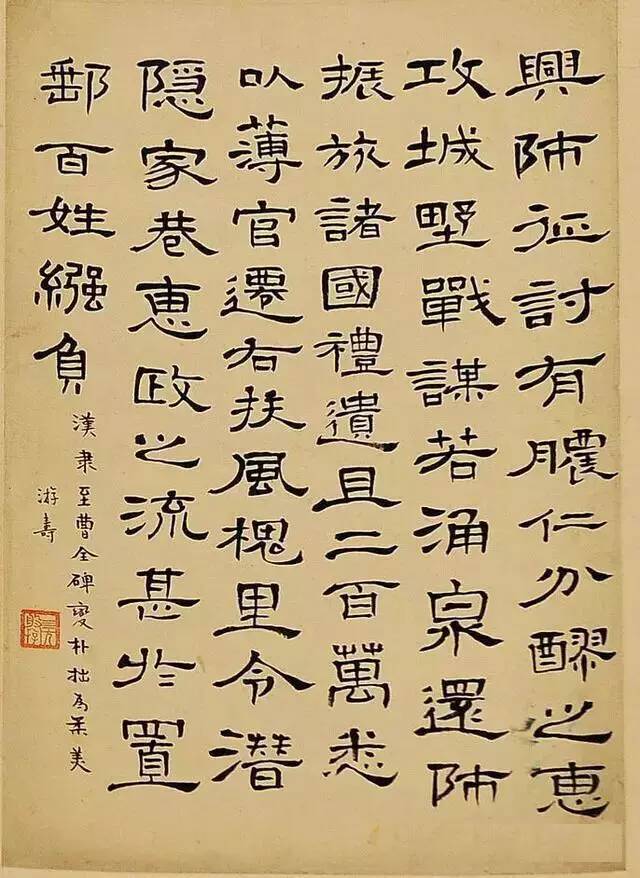 興師征討有膿仁分醪之惠
攻城墅戰謀若涌泉還師
振旅諸國禮遺且二百萬悉
以薄官遷右扶風槐里令潛
隱家巷惠政之流甚於置
郵百姓繦負
漢隸至曹全碑變朴拙為柔美
游壽